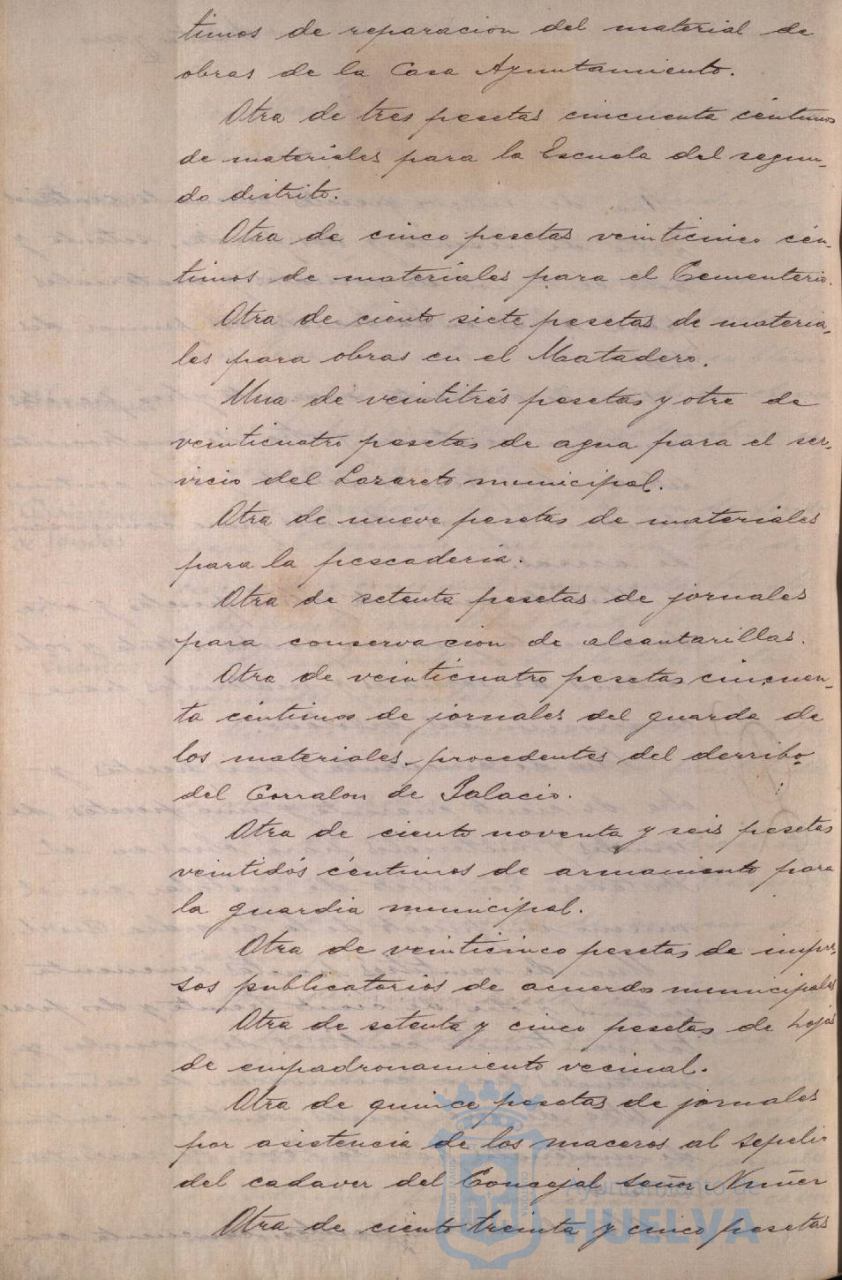 timos de reparacion del material de
obras de la Casa Ayuntamiento.
Otra de tres pesetas cincuenta céntimos
de materiales para la Escuela del segun-
do distrito.
Otra de cinco pesetas veinticinco cén-
timos de materiales para el Cementerio.
Otra de ciento siete pesetas de materia-
les para obras en el Matadero.
Una de veintitrés pesetas y otre de
veinticuatro pesetas de agua para el ser-
vicio del Lazareto municipal.
Otra de nueve pesetas de materiales
para la pescadería.
Otra de setenta pesetas de jornales
para conservacion de alcantarillas.
Otra de veinticuatro pesetas cincuen-
ta céntimos de jornales del guarda de
los materiales procedentes del derribo
del Corralon de Palacio.
Otra de ciento noventa y seis pesetas
veintidós céntimos de armamento para
la guardia municipal.
Otra de veinticinco pesetas de impre-
sos publicatorios de acuerdo municipales
Otra de setenta y cinco pesetas de hojas
de empadronamiento vecinal.
Otra de quince pesetas de jornales
por asistencia de los maceros al sepelio
del cadaver del Concejal señor Nuñez
Otra de ciento treinta y cinco pesetas
Ayuntamiento de
HUELVA